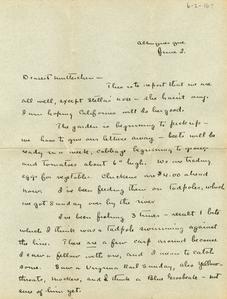 6-2-16
Albuquerque
June 2.
Dearest Mutterchen -
This is to report that we are
all well, except Stella's nose - she hasn't any.
I am hoping California will be good.
The garden is beginning to pick up -
we have to give our lettuce away - beets will be
ready in a week, cabbage beginning to
and tomatoes about 6" high. We are trading
eggs for vegetable. Chickens are $4.00 ahead
now. I've been feeding them on tadpoles, which
we got Sunday over by the river
I've been fishing 3 times - result 1 bite
which I think was a tadpole swimming against
the line. There are a few carp around because
I saw a fellow with one, and I mean to catch
some. Saw a Virginia Rail Sunday, also Yellow-
throats, and I think a Blue Grosbeak - not
sure of him yet.